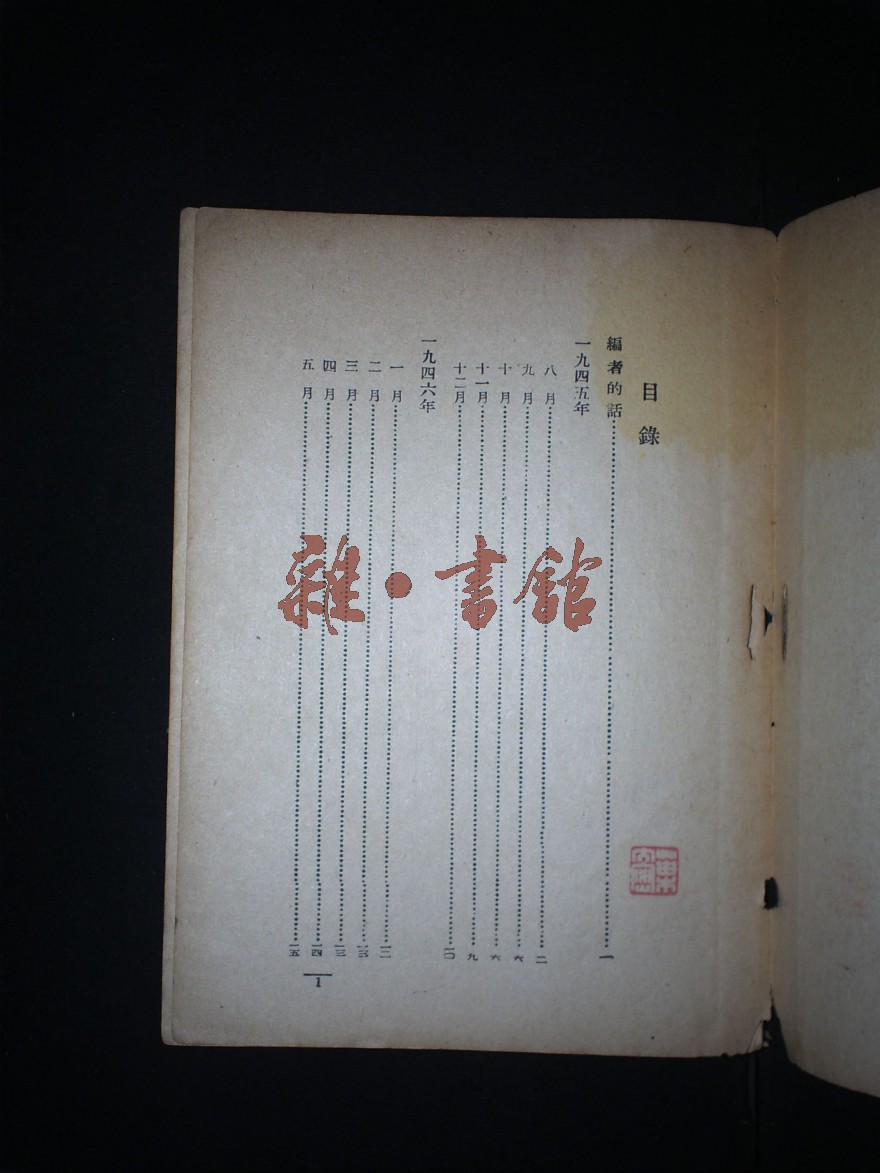 目錄
編者的話……一
一九四五年
八月……二
九月……六
十月……六
十一月……九
十二月……一〇
一九四六年
一月……一二
二月……一三
三月……一三
四月……一四
五月……一五
1
雜·書舘